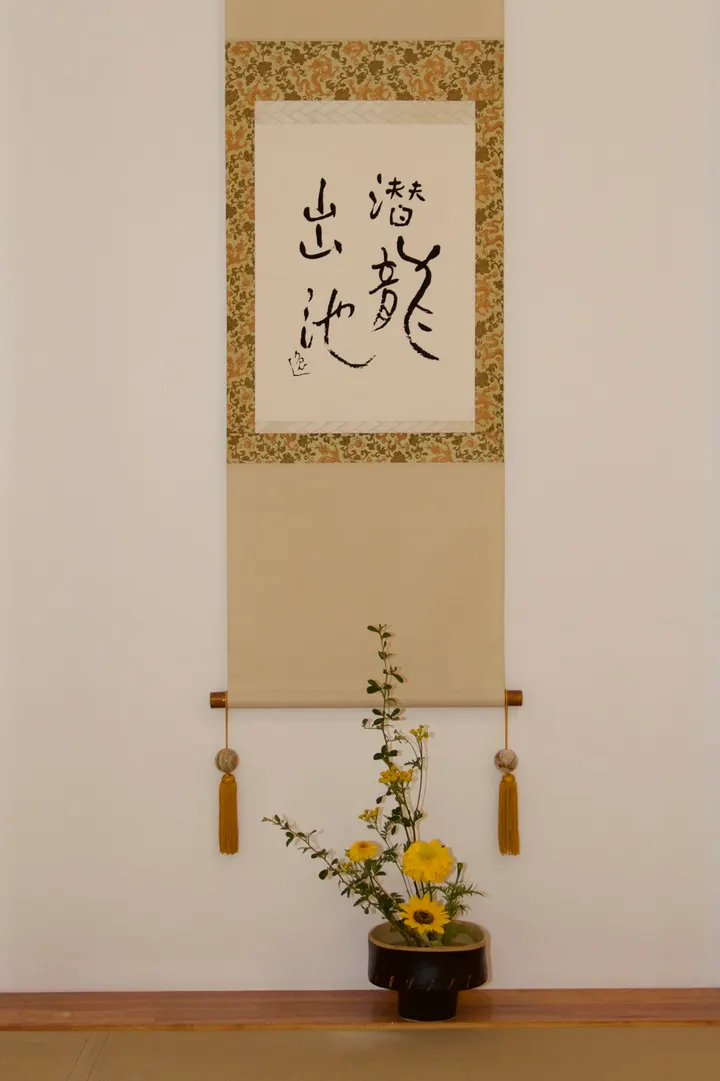 潜龍
出池
逸